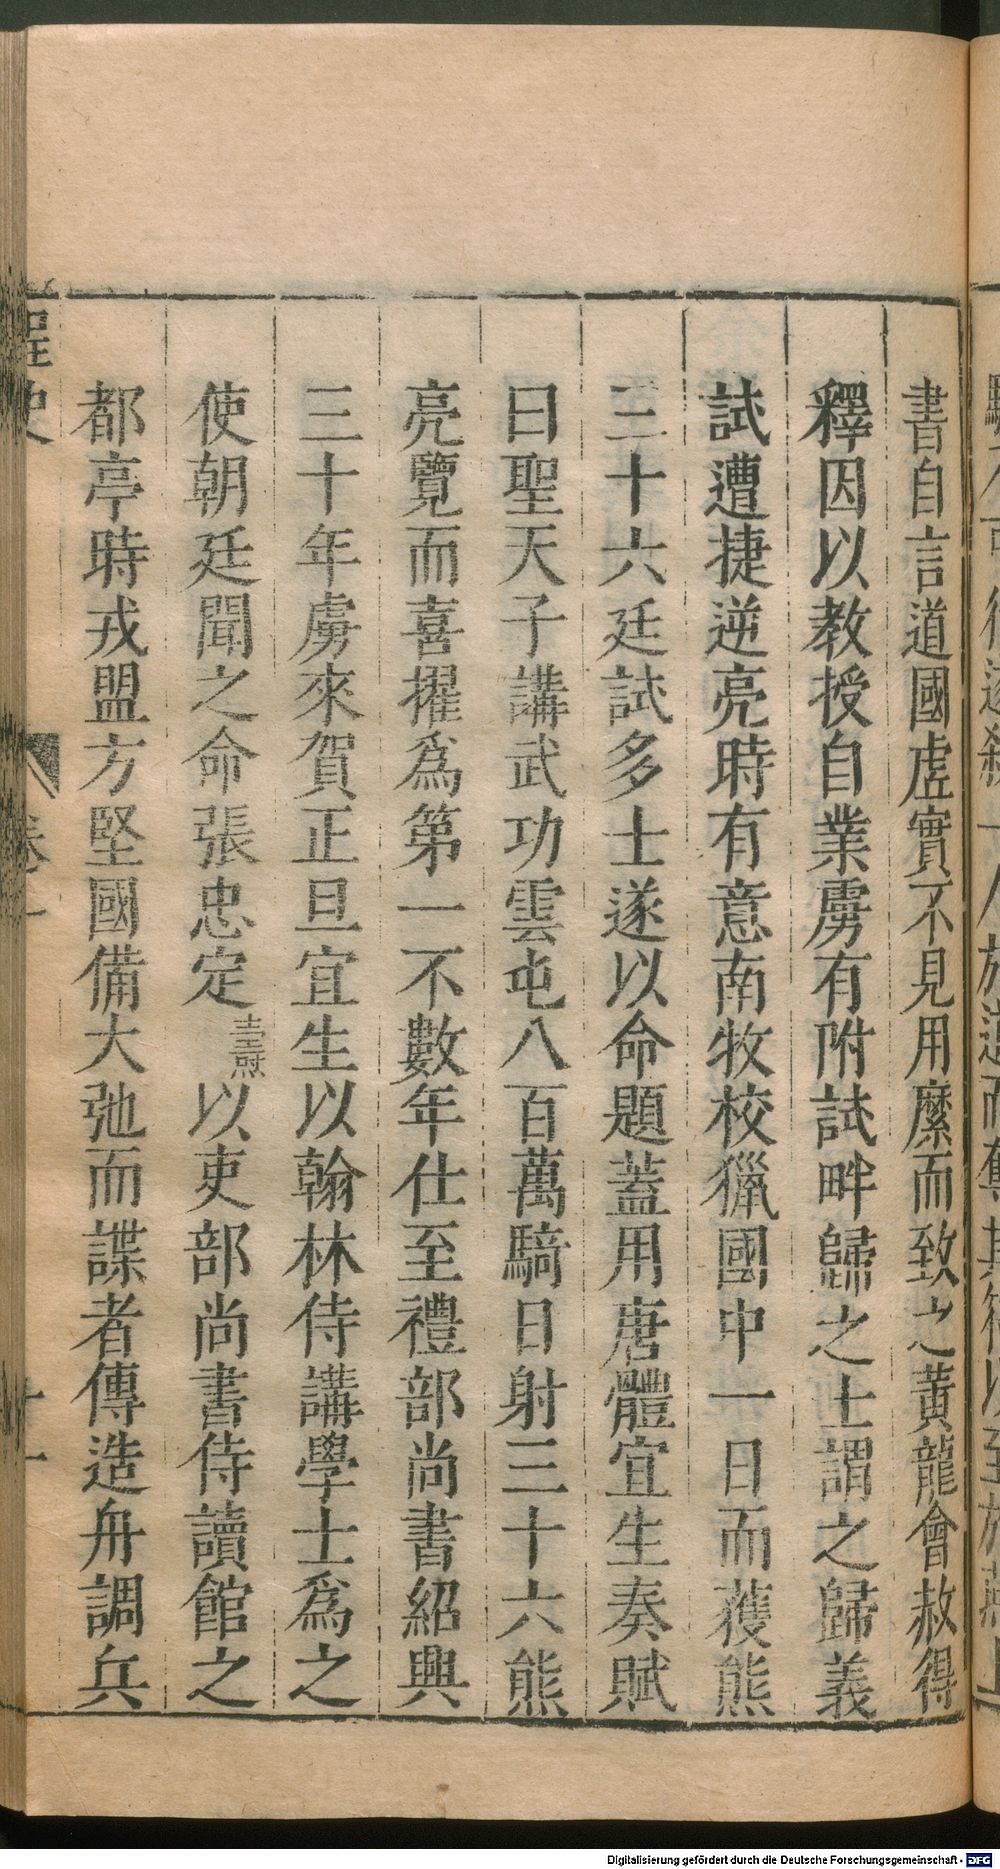 書自言道國虛實不見用縻而致之黃龍會赦得
釋因以教授自業虜有附試畔歸之士謂之歸義
試遭捷逆亮時有意南牧校獵國中一日而獲熊
三十六廷試多士遂以命題蓋用唐體宜生奏賦
曰聖天子講武功雲屯八百萬騎日射三十六熊
亮覽而喜擢爲第一不數年仕至禮部尚書紹興
三十年虜來賀正旦宜生以翰林侍講學士爲之
使朝廷聞之命張忠定燾以吏部尚書侍讀館之
都亭時戎盟方堅國備大弛而諜者傳造舟調兵
桯史 卷一 十一
Digitalisierung gefördert durch die Deutsche Forschungsgemeinschaft - DFG